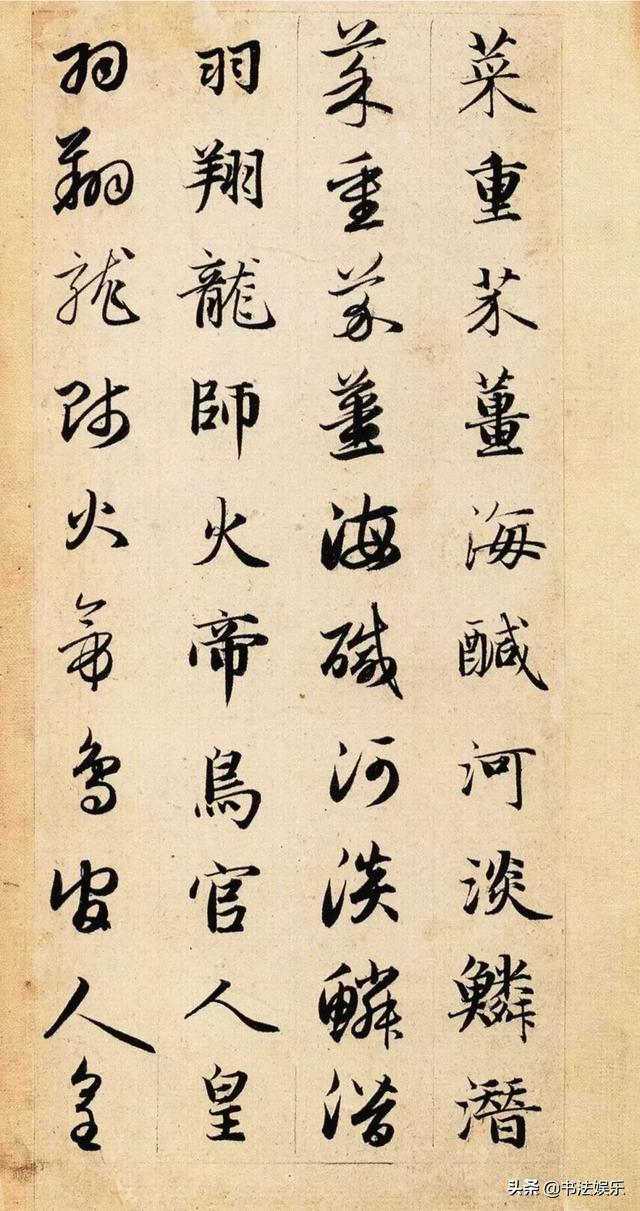 菜重芥薑海醎河淡鱗潛
菜重芥薑海醎河淡鱗潛
羽翔龍師火帝鳥官人皇
羽翔龍師火帝鳥官人皇
头条 @书法娱乐